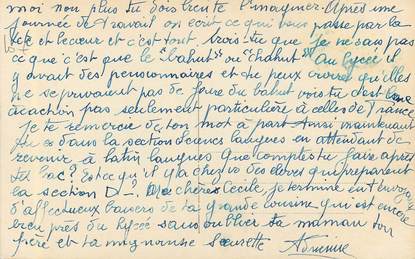 moi non plus tu dois bien te l'imaginer. Après une
journée de travail on écrit ce qui vous passe par la
tête et le cœur et c'est tout. Crois-tu que je ne sais pas
ce que c'est que le "bahut" ou "chahut" Au lycée il
y avait des pensionnaires et tu peux croire qu'elles
ne se privaient pas de faire du bahut vois tu c'est une
pas seulement particulière à celles de France
Je te remercie de ton mot à part Ainsi maintenant
tu es dans la section sciences langues en attendant de
revenir à latin langues que comptes tu faire après
ton bac? Est ce qu'il y a chez vous des élèves qui préparent
la section D? Ma chère Cécile, je termine en t'envoyant
d'affectueux baisers de ta grande cousine qui est encore
bien près du lycée sans oublier ta maman ton
frère et ta mignonne sœurette Adrienne